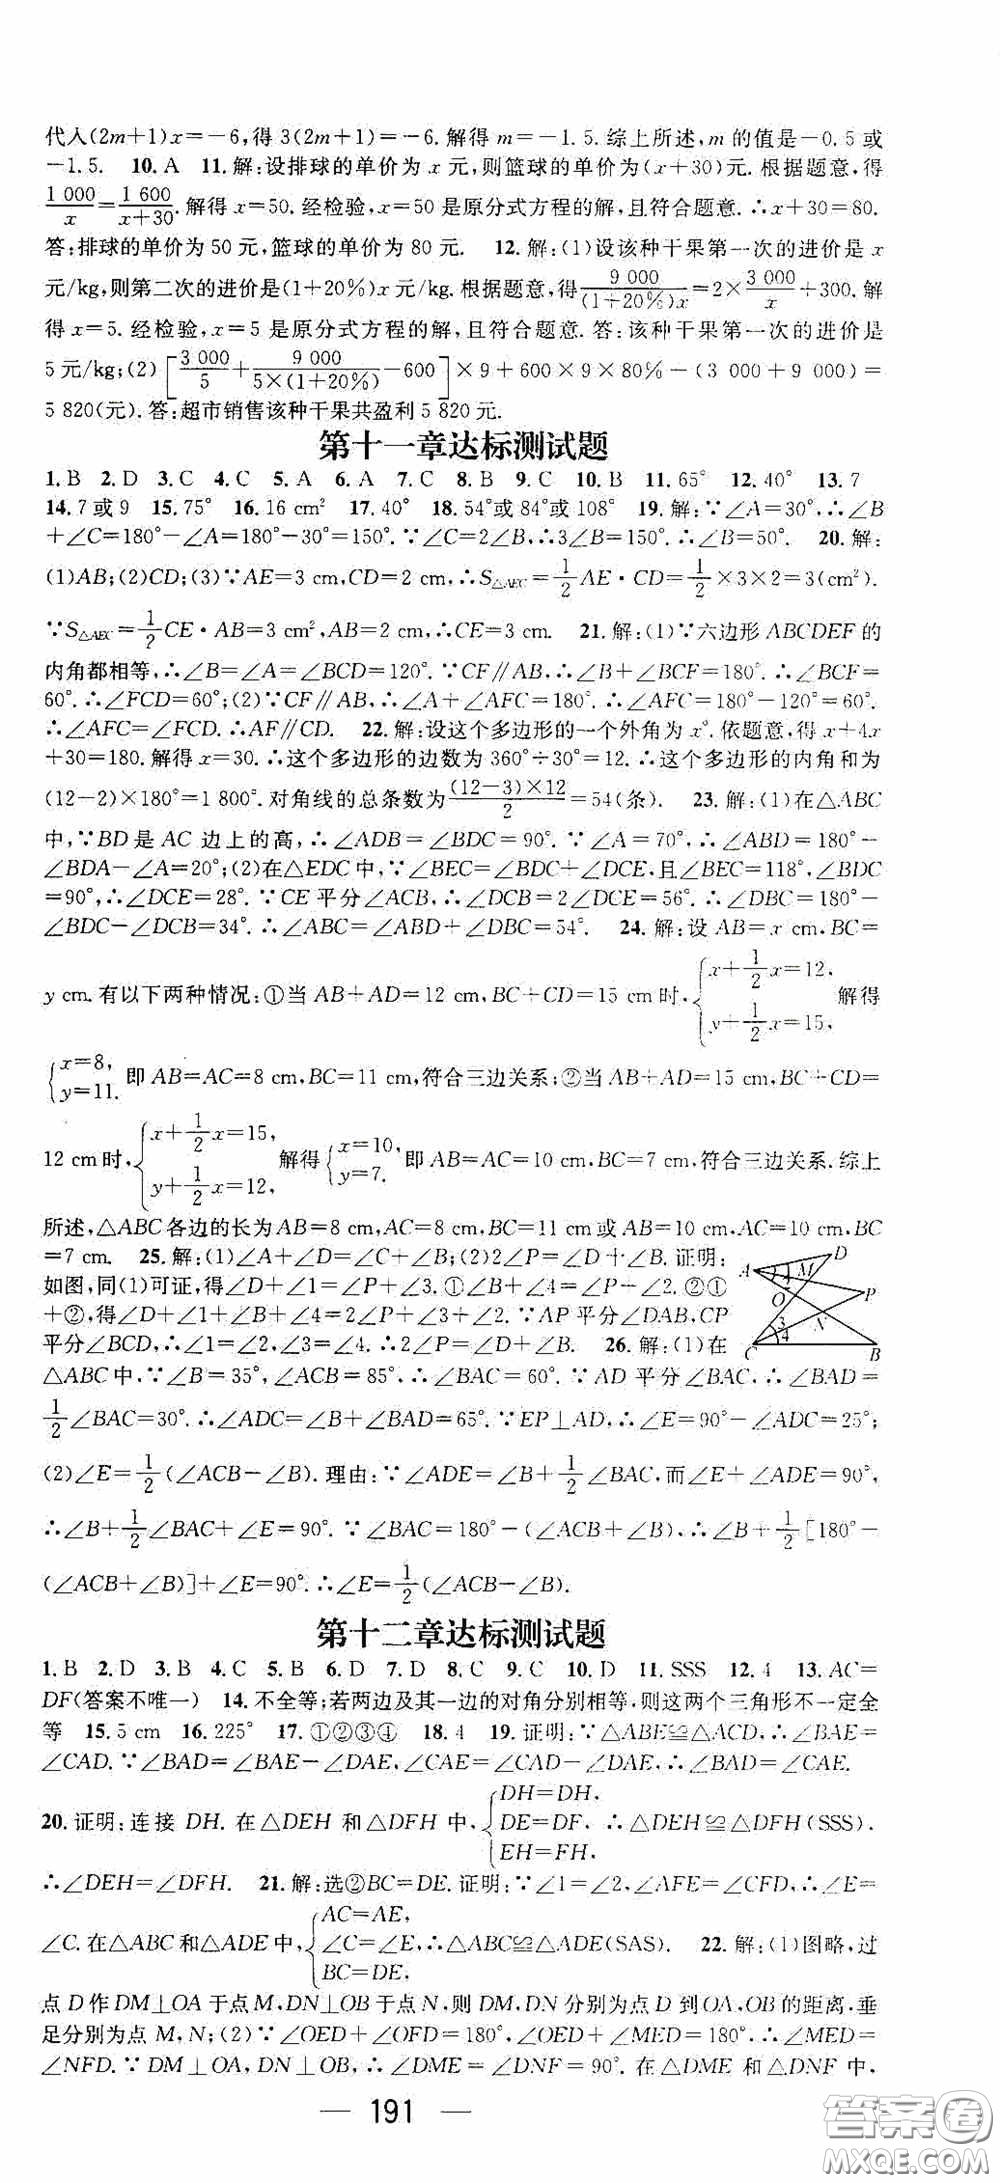 代入(2m+1)x=-6,得3(2m+1)=-6.解得m=-1.5.综上所述,m的值是-0.5或
-1.5. 10.A 11.解:设排球的单价为x元,则篮球的单价为(x+30)元.根据题意,得
1 000/x=1 600/(x+30).解得x=50.经检验,x=50是原分式方程的解,且符合题意.∴x+30=80.
答:排球的单价为50元,篮球的单价为80元. 12.解:(1)设该种干果第一次的进价是x
元/kg,则第二次的进价是(1+20%)x元/kg.根据题意,得9 000/((1+20%)x)=2×3 000/x+300.解
得x=5.经检验,x=5是原分式方程的解,且符合题意.答:该种干果第一次的进价是
5元/kg;(2)[3 000/5+9 000/(5×(1+20%))-600]×9+600×9×80%-(3 000+9 000)=
5 820(元).答:超市销售该种干果共盈利5 820元.
第十一章达标测试题
1.B 2.D 3.C 4.C 5.A 6.A 7.C 8.B 9.C 10.B 11.65° 12.40° 13.7
14.7或9 15.75° 16.16 cm² 17.40° 18.54°或84°或108° 19.解:∵∠A=30°,∴∠B
+∠C=180°-∠A=180°-30°=150°.∵∠C=2∠B,∴3∠B=150°.∴∠B=50°. 20.解:
(1)AB;(2)CD;(3)∵AE=3 cm,CD=2 cm,∴S△AEC=1/2AE·CD=1/2×3×2=3(cm²).
∵S△AEC=1/2CE·AB=3 cm²,AB=2 cm,∴CE=3 cm. 21.解:(1)∵六边形ABCDEF的
内角都相等,∴∠B=∠A=∠BCD=120°.∵CF∥AB,∴∠B+∠BCF=180°.∴∠BCF=
60°.∴∠FCD=60°;(2)∵CF∥AB,∴∠A+∠AFC=180°.∴∠AFC=180°-120°=60°.
∴∠AFC=∠FCD.∴AF∥CD. 22.解:设这个多边形的一个外角为x°.依题意,得x+4x
+30=180.解得x=30.∴这个多边形的边数为360°÷30°=12.∴这个多边形的内角和为
(12-2)×180°=1 800°.对角线的总条数为(12-3)×12/2=54(条). 23.解:(1)在△ABC
中,∵BD是AC边上的高,∴∠ADB=∠BDC=90°.∵∠A=70°,∴∠ABD=180°-
∠BDA-∠A=20°;(2)在△EDC中,∵∠BEC=∠BDC+∠DCE,且∠BEC=118°,∠BDC
=90°,∴∠DCE=28°.∵CE平分∠ACB,∴∠DCB=2∠DCE=56°.∴∠DBC=180°-
∠BDC-∠DCB=34°.∴∠ABC=∠ABD+∠DBC=54°. 24.解:设AB=x cm,BC=
y cm.有以下两种情况:①当AB+AD=12 cm,BC+CD=15 cm时,{x+1/2x=12, y+1/2x=15, 解得
{x=8, y=11. 即AB=AC=8 cm,BC=11 cm,符合三边关系;②当AB+AD=15 cm,BC+CD=
12 cm时,{x+1/2x=15, y+1/2x=12, 解得{x=10, y=7. 即AB=AC=10 cm,BC=7 cm,符合三边关系.综上
所述,△ABC各边的长为AB=8 cm,AC=8 cm,BC=11 cm或AB=10 cm,AC=10 cm,BC
=7 cm. 25.解:(1)∠A+∠D=∠C+∠B;(2)2∠P=∠D+∠B.证明:
如图,同(1)可证,得∠D+∠1=∠P+∠3.①∠B+∠4=∠P+∠2.②①
+②,得∠D+∠1+∠B+∠4=2∠P+∠3+∠2.∵AP平分∠DAB,CP
平分∠BCD,∴∠1=∠2,∠3=∠4.∴2∠P=∠D+∠B. 26.解:(1)在
A D M 1 4 O P 3 4 N C B
△ABC中,∵∠B=35°,∠ACB=85°,∴∠BAC=60°.∵AD平分∠BAC,∴∠BAD=
1/2∠BAC=30°.∴∠ADC=∠B+∠BAD=65°.∵EP⊥AD,∴∠E=90°-∠ADC=25°;
(2)∠E=1/2(∠ACB-∠B).理由:∵∠ADE=∠B+1/2∠BAC,而∠E+∠ADE=90°,
∴∠B+1/2∠BAC+∠E=90°.∵∠BAC=180°-(∠ACB+∠B),∴∠B+1/2[180°-
(∠ACB+∠B)]+∠E=90°.∴∠E=1/2(∠ACB-∠B).
第十二章达标测试题
1.B 2.D 3.B 4.C 5.B 6.D 7.D 8.C 9.C 10.D 11.SSS 12.4 13.AC=
DF(答案不唯一) 14.不全等;若两边及其一边的对角分别相等,则这两个三角形不一定全
等 15.5 cm 16.225° 17.①②③④ 18.4 19.证明:∵△ABE≌△ACD,∴∠BAE=
∠CAD.∵∠BAD=∠BAE-∠DAE,∠CAE=∠CAD-∠DAE,∴∠BAD=∠CAE.
20.证明:连接DH.在△DEH和△DFH中,{DH=DH, DE=DF, EH=FH, ∴△DEH≌△DFH(SSS).
∴∠DEH=∠DFH. 21.解:选②BC=DE.证明:∵∠1=∠2,∠AFE=∠CFD,∴∠E=
∠C.在△ABC和△ADE中,{AC=AE, ∠C=∠E, BC=DE, ∴△ABC≌△ADE(SAS). 22.解:(1)图略,过
点D作DM⊥OA于点M,DN⊥OB于点N,则DM,DN分别为点D到OA,OB的距离,垂
足分别为点M,N;(2)∵∠OED+∠OFD=180°,∠OED+∠MED=180°,∴∠MED=
∠NFD.∵DM⊥OA,DN⊥OB,∴∠DME=∠DNF=90°.在△DME和△DNF中,
— 191 —
答案圈
MXQE.COM